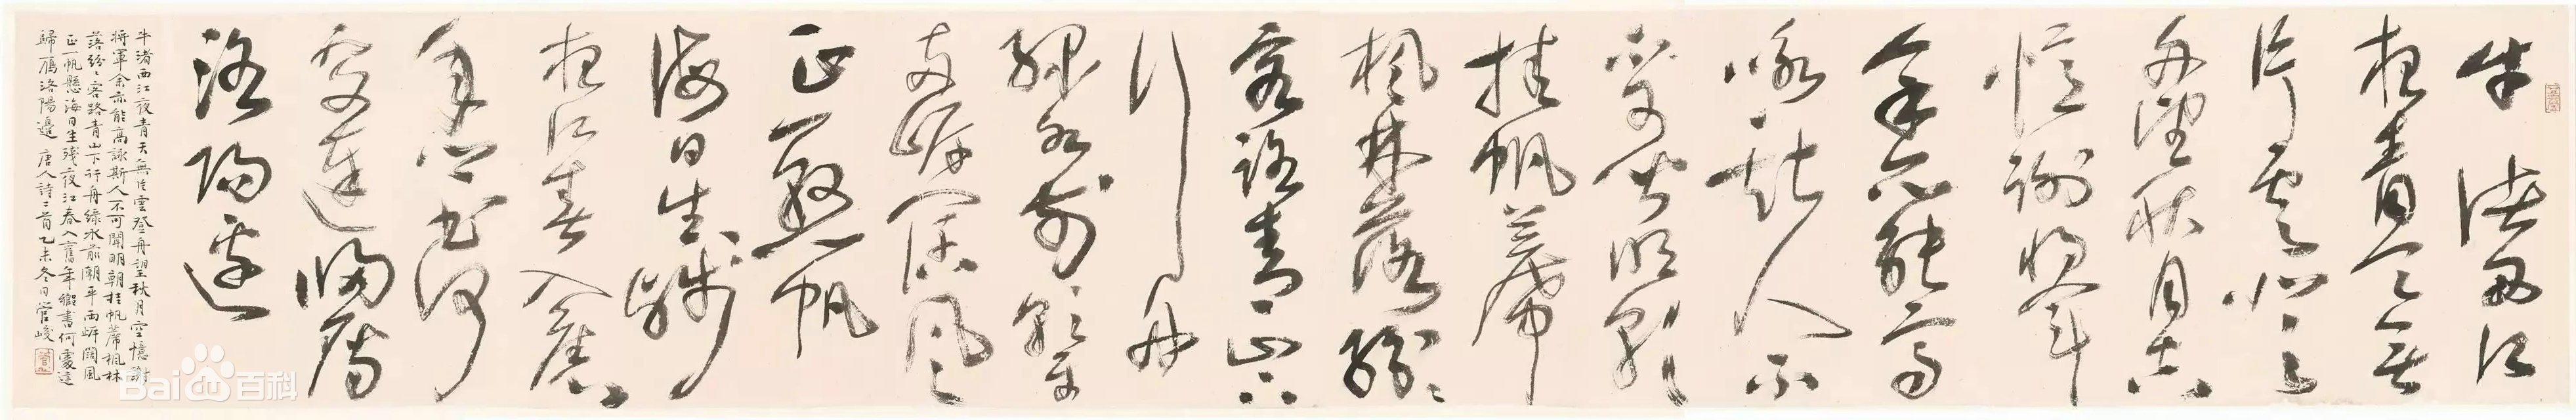 牛渚西江
夜青天無
片雲登
舟望秋月空
憶謝將軍
余亦能高
詠斯人不
可聞明朝
挂帆席
楓林落紛〻
客路青山下
行舟
綠水前潮平
兩岸闊風
正一懸帆
海日生殘
夜江春入舊
年鄉書何
處達歸鴈
洛陽邊
牛渚西江夜青天無片雲登舟望秋月空憶謝
將軍余亦能高詠斯人不可聞明朝挂帆席楓林
落紛〻客路青山下行舟綠水前潮平兩岸闊風
正一帆懸海日生殘夜江春入舊年鄉書何處達
歸鴈洛陽邊 唐人詩二首乙未冬日管峻
Baidu百科